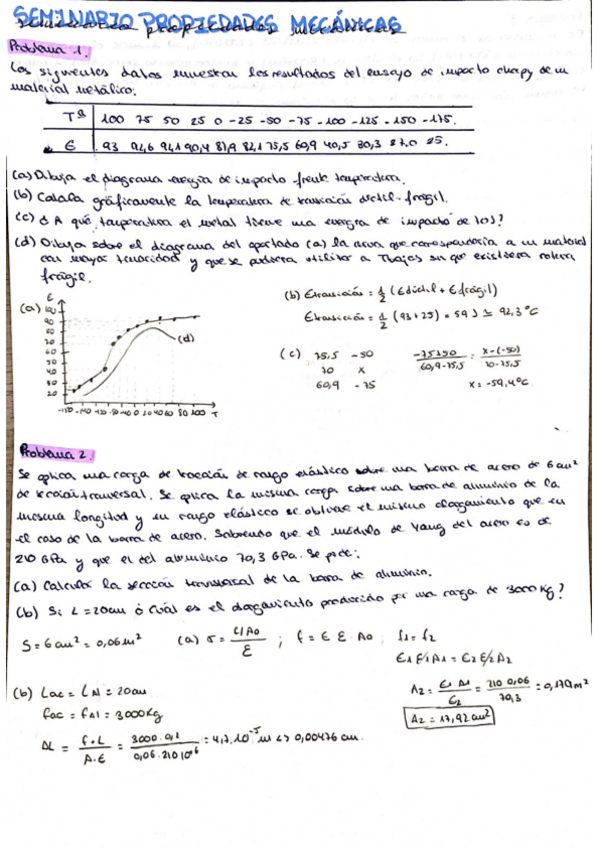 SEMINARIO PROPIEDADES MECÁNICAS
Problema 1.
Los siguientes datos muestran los resultados del ensayo de impacto charpy de un
material metálico:
Tª 100 75 50 25 0 -25 -50 -75 -100 -125 -150 -175.
E 93 92,6 92,1 90,4 87,9 82,1 75,5 60,9 40,5 30,3 27,0 25.
(a) Dibuja el diagrama energía de impacto frente temperatura.
(b) Calcula gráficamente la temperatura de transición dúctil-frágil.
(c) ¿A qué temperatura el metal tiene una energía de impacto de 70J?
(d) Dibuja sobre el diagrama del apartado (a) la curva que correspondería a un material
con mayor tenacidad y que se pudiera utilizar a Tbajas sin que existiera rotura
frágil.
(a) E
100
90
80
70
60
50
40
30
20
(d)
0 20 40 60 80 100 T
(b) Etransición = 1/2 (Edúctil + Efrágil)
Etransición = 1/2 (93+25) = 59J ≅ 92,3 ºC
(c) 75,5 -50
70 x
60,9 -75
-75+50 / 60,9-75,5 = x-(-50) / 70-75,5
x = -59,4ºC
Problema 2.
Se aplica una carga de tracción de rango elástico sobre una barra de acero de 6 cm²
de sección transversal. Se aplica la misma carga sobre una barra de aluminio de la
misma longitud y en rango elástico se obtuvo el mismo alargamiento que en
el caso de la barra de acero. Sabiendo que el módulo de Yang del acero es de
210 GPa y que el del aluminio 70,3 GPa. Se pide:
(a) Calcular la sección transversal de la barra de aluminio.
(b) Si L=20cm ¿Cuál es el alargamiento producido por una carga de 3000 kg?
S = 6 cm² = 0,06 m²
(a) σ = / E ; f = E E · A0 ; f1 = f2
E1 E/1 A1 = E2 E/2 A2
A2 = E1 A1 / E2 = 210 0,06 / 70,3 = 0,179 m²
A2 = 17,92 cm²
(b) Lac = LAl = 20cm
Fac = FAl = 3000 kg
ΔL = F·L / A·E = 3000·0,2 / 0,06·210·10⁶ = 4,7·10⁻⁵ m <> 0,00476 cm.